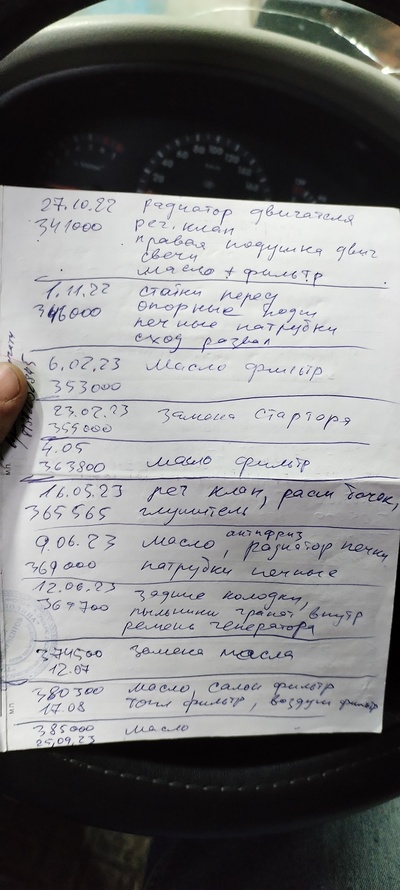 27.10.22 радиатор двигателя
341000 рег. клап
правая подушка двиг
свечи
масло + фильтр
1.11.22 стойки перед
346000 опорные подш
печные патрубки
сход развал
6.02.23 Масло фильтр
353000
23.02.23 Замена Стартора
355000
4.05
363800 масло фильтр
16.05.23 рег клап, расш бачек,
365565 глушитель,
антифриз
9.06.23 Масло, радиатор печки
369000 патрубки печные
12.06.23 задние колодки,
369700 пыльники гранат, внутр
ремень генератора
374500 замена масла
12.07
380300 масло, салон фильтр
17.08 топл фильтр, воздуш фильтр
385000 масло
25.09.23